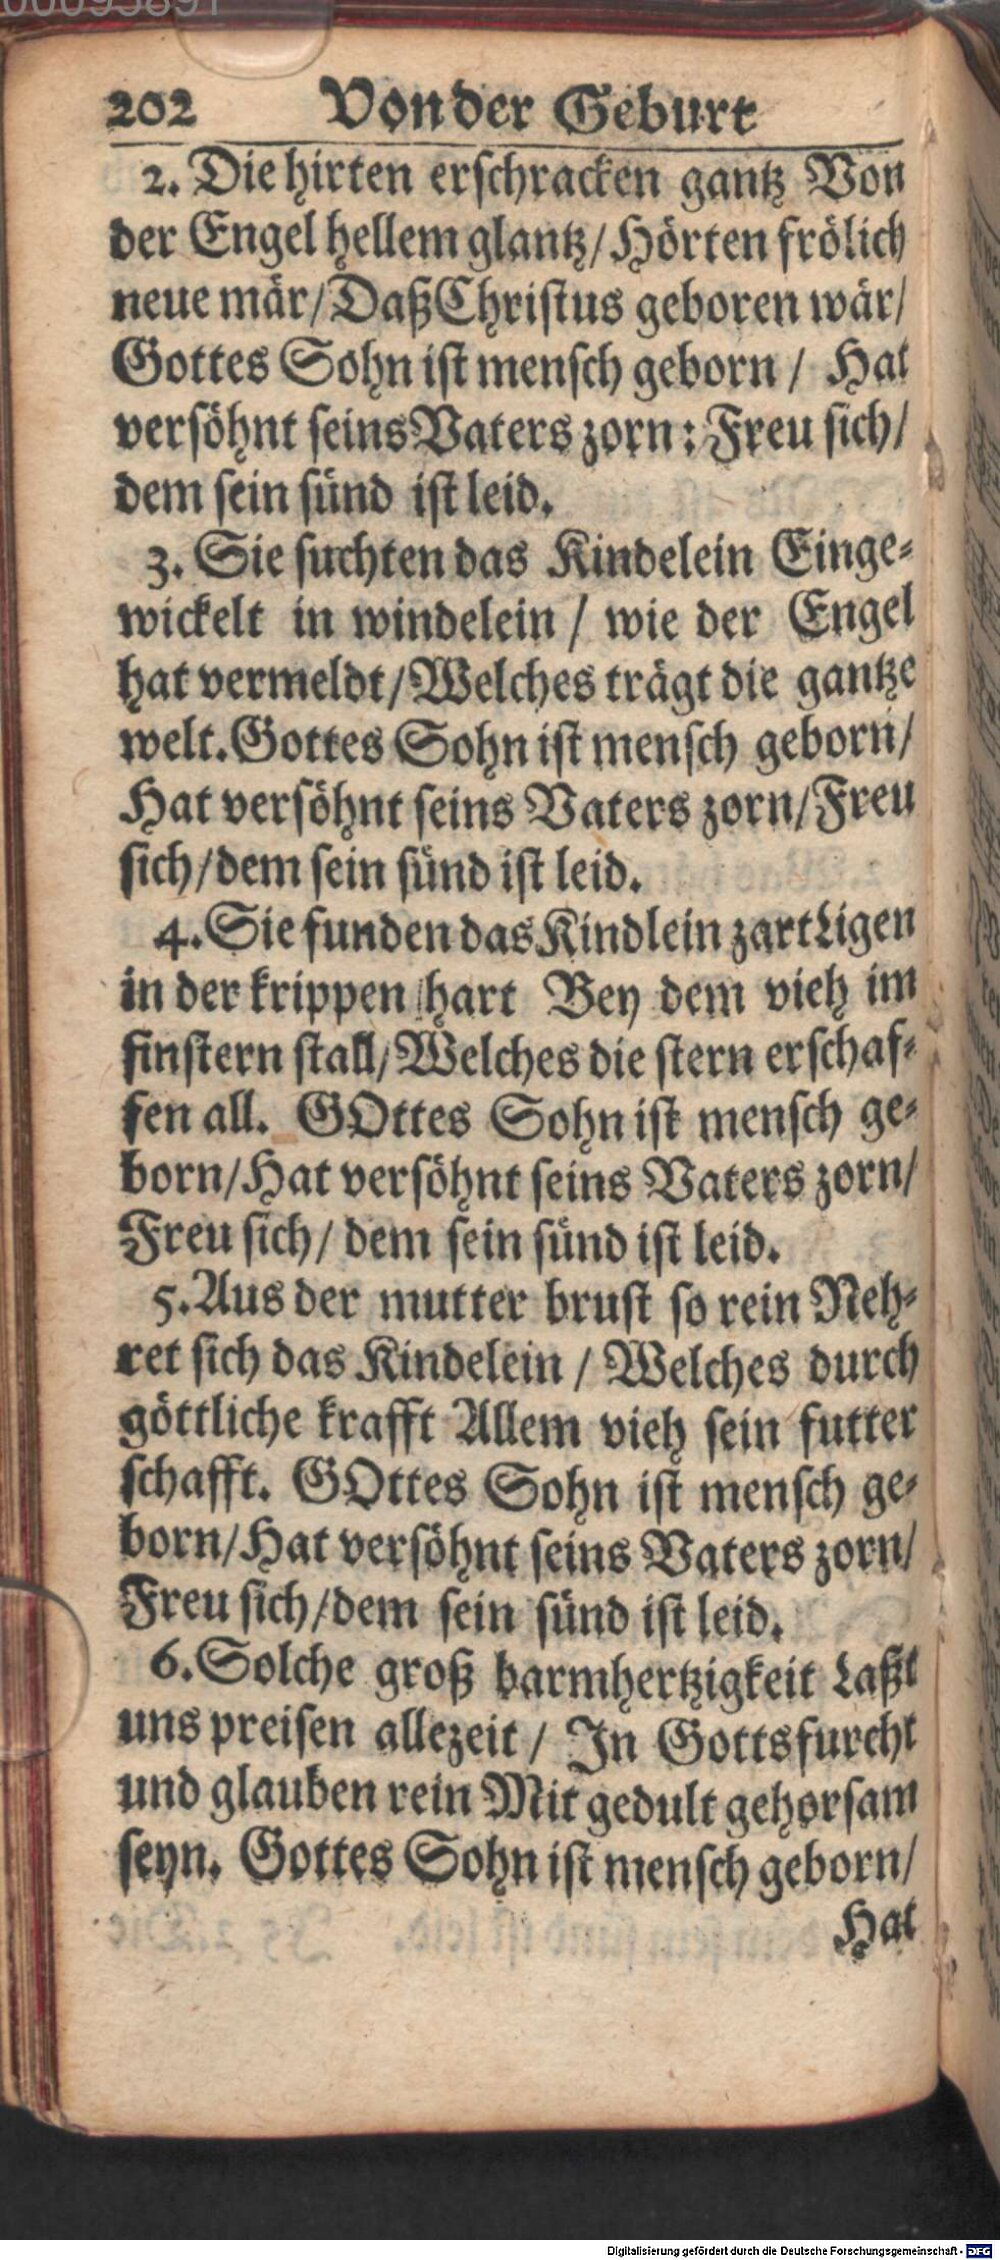 202 Von der Geburt
2. Die hirten erschracken gantz Von
der Engel hellem glantz/ Hörten frölich
neue mär/ Daß Christus geboren wär/
Gottes Sohn ist mensch geborn / Hat
versöhnt seins Vaters zorn: Freu sich/
dem sein sünd ist leid.
3. Sie suchten das Kindelein Einge-
wickelt in windelein / wie der Engel
hat vermeldt/ Welches trägt die gantze
welt. Gottes Sohn ist mensch geborn/
Hat versöhnt seins Vaters zorn/ Freu
sich/ dem sein sünd ist leid.
4. Sie funden das Kindlein zart Ligen
in der krippen hart Bey dem vieh im
finstern stall/ Welches die stern erschaf-
fen all. GOttes Sohn ist mensch ge-
born/ Hat versöhnt seins Vaters zorn/
Freu sich/ dem sein sünd ist leid.
5. Aus der mutter brust so rein Neh-
ret sich das Kindelein / Welches durch
göttliche krafft Allem vieh sein futter
schafft. GOttes Sohn ist mensch ge-
born/ Hat versöhnt seins Vaters zorn/
Freu sich/ dem sein sünd ist leid.
6. Solche groß barmhertzigkeit Laßt
uns preisen allezeit / In Gottsfurcht
und glauben rein Mit gedult gehorsam
seyn. Gottes Sohn ist mensch geborn/
Hat
Digitalisierung gefördert durch die Deutsche Forschungsgemeinschaft - DFG